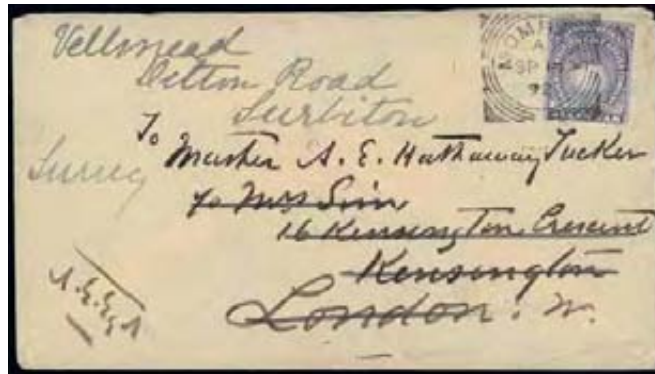 Vellmead
Ditton Road
Surbiton
Surrey
To
Master A. E. Hathaway Tucker
c/o Mrs Sim
16 Kensington Crescent
Kensington
London. W.
MOMB
A
SP
92